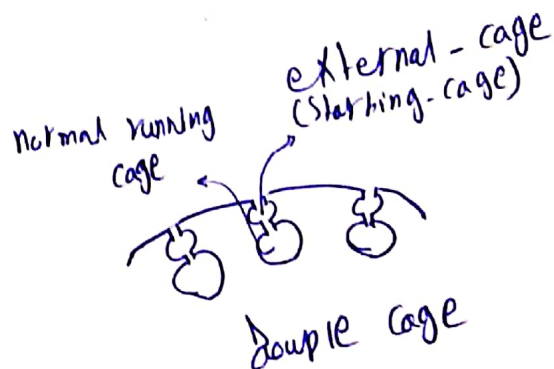 external - cage
(Starting-cage)
normal running
cage
Douple cage